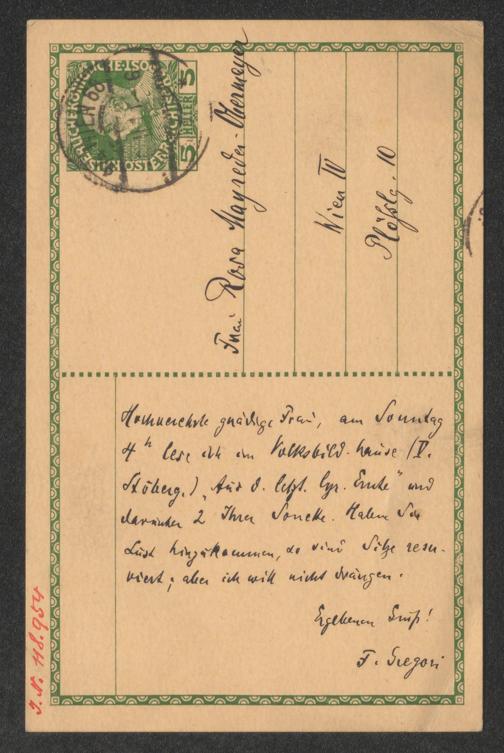 5 HELLER 5
Frau Rosa Mayreder-Obermayer
Wien IV
Plößlg. 10
Hochverehrte gnädige Frau, am Sonntag
4 h lese ich im Volksbild. hause (V.
Stöberg.) „Aus d. letzt. lyr. Ernte" und
darunter 2 Ihrer Sonette. Haben Sie
Lust hinzukommen, so sind Sitze reser-
viert; aber ich will nicht drängen.
Ergebenen Gruß!
F. Gregori
J. N. 118.954